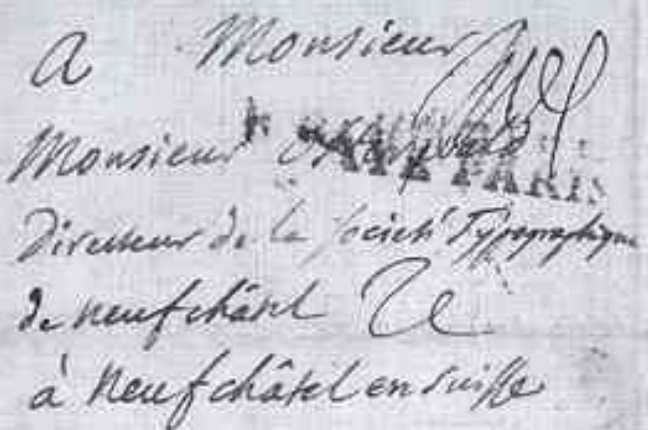 A Monsieur
Monsieur
Directeur de la Société Typographique
de neufchâtel
à Neufchâtel en Suisse